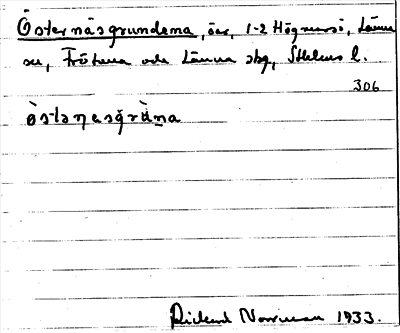 Östernäsgrundena, öar, 1-2 Högmarsö, Länna
sn, Frötuna och Länna skg, Sthlms l.
306
östaṇesgrùṇa
Rickard Norrman 1933.